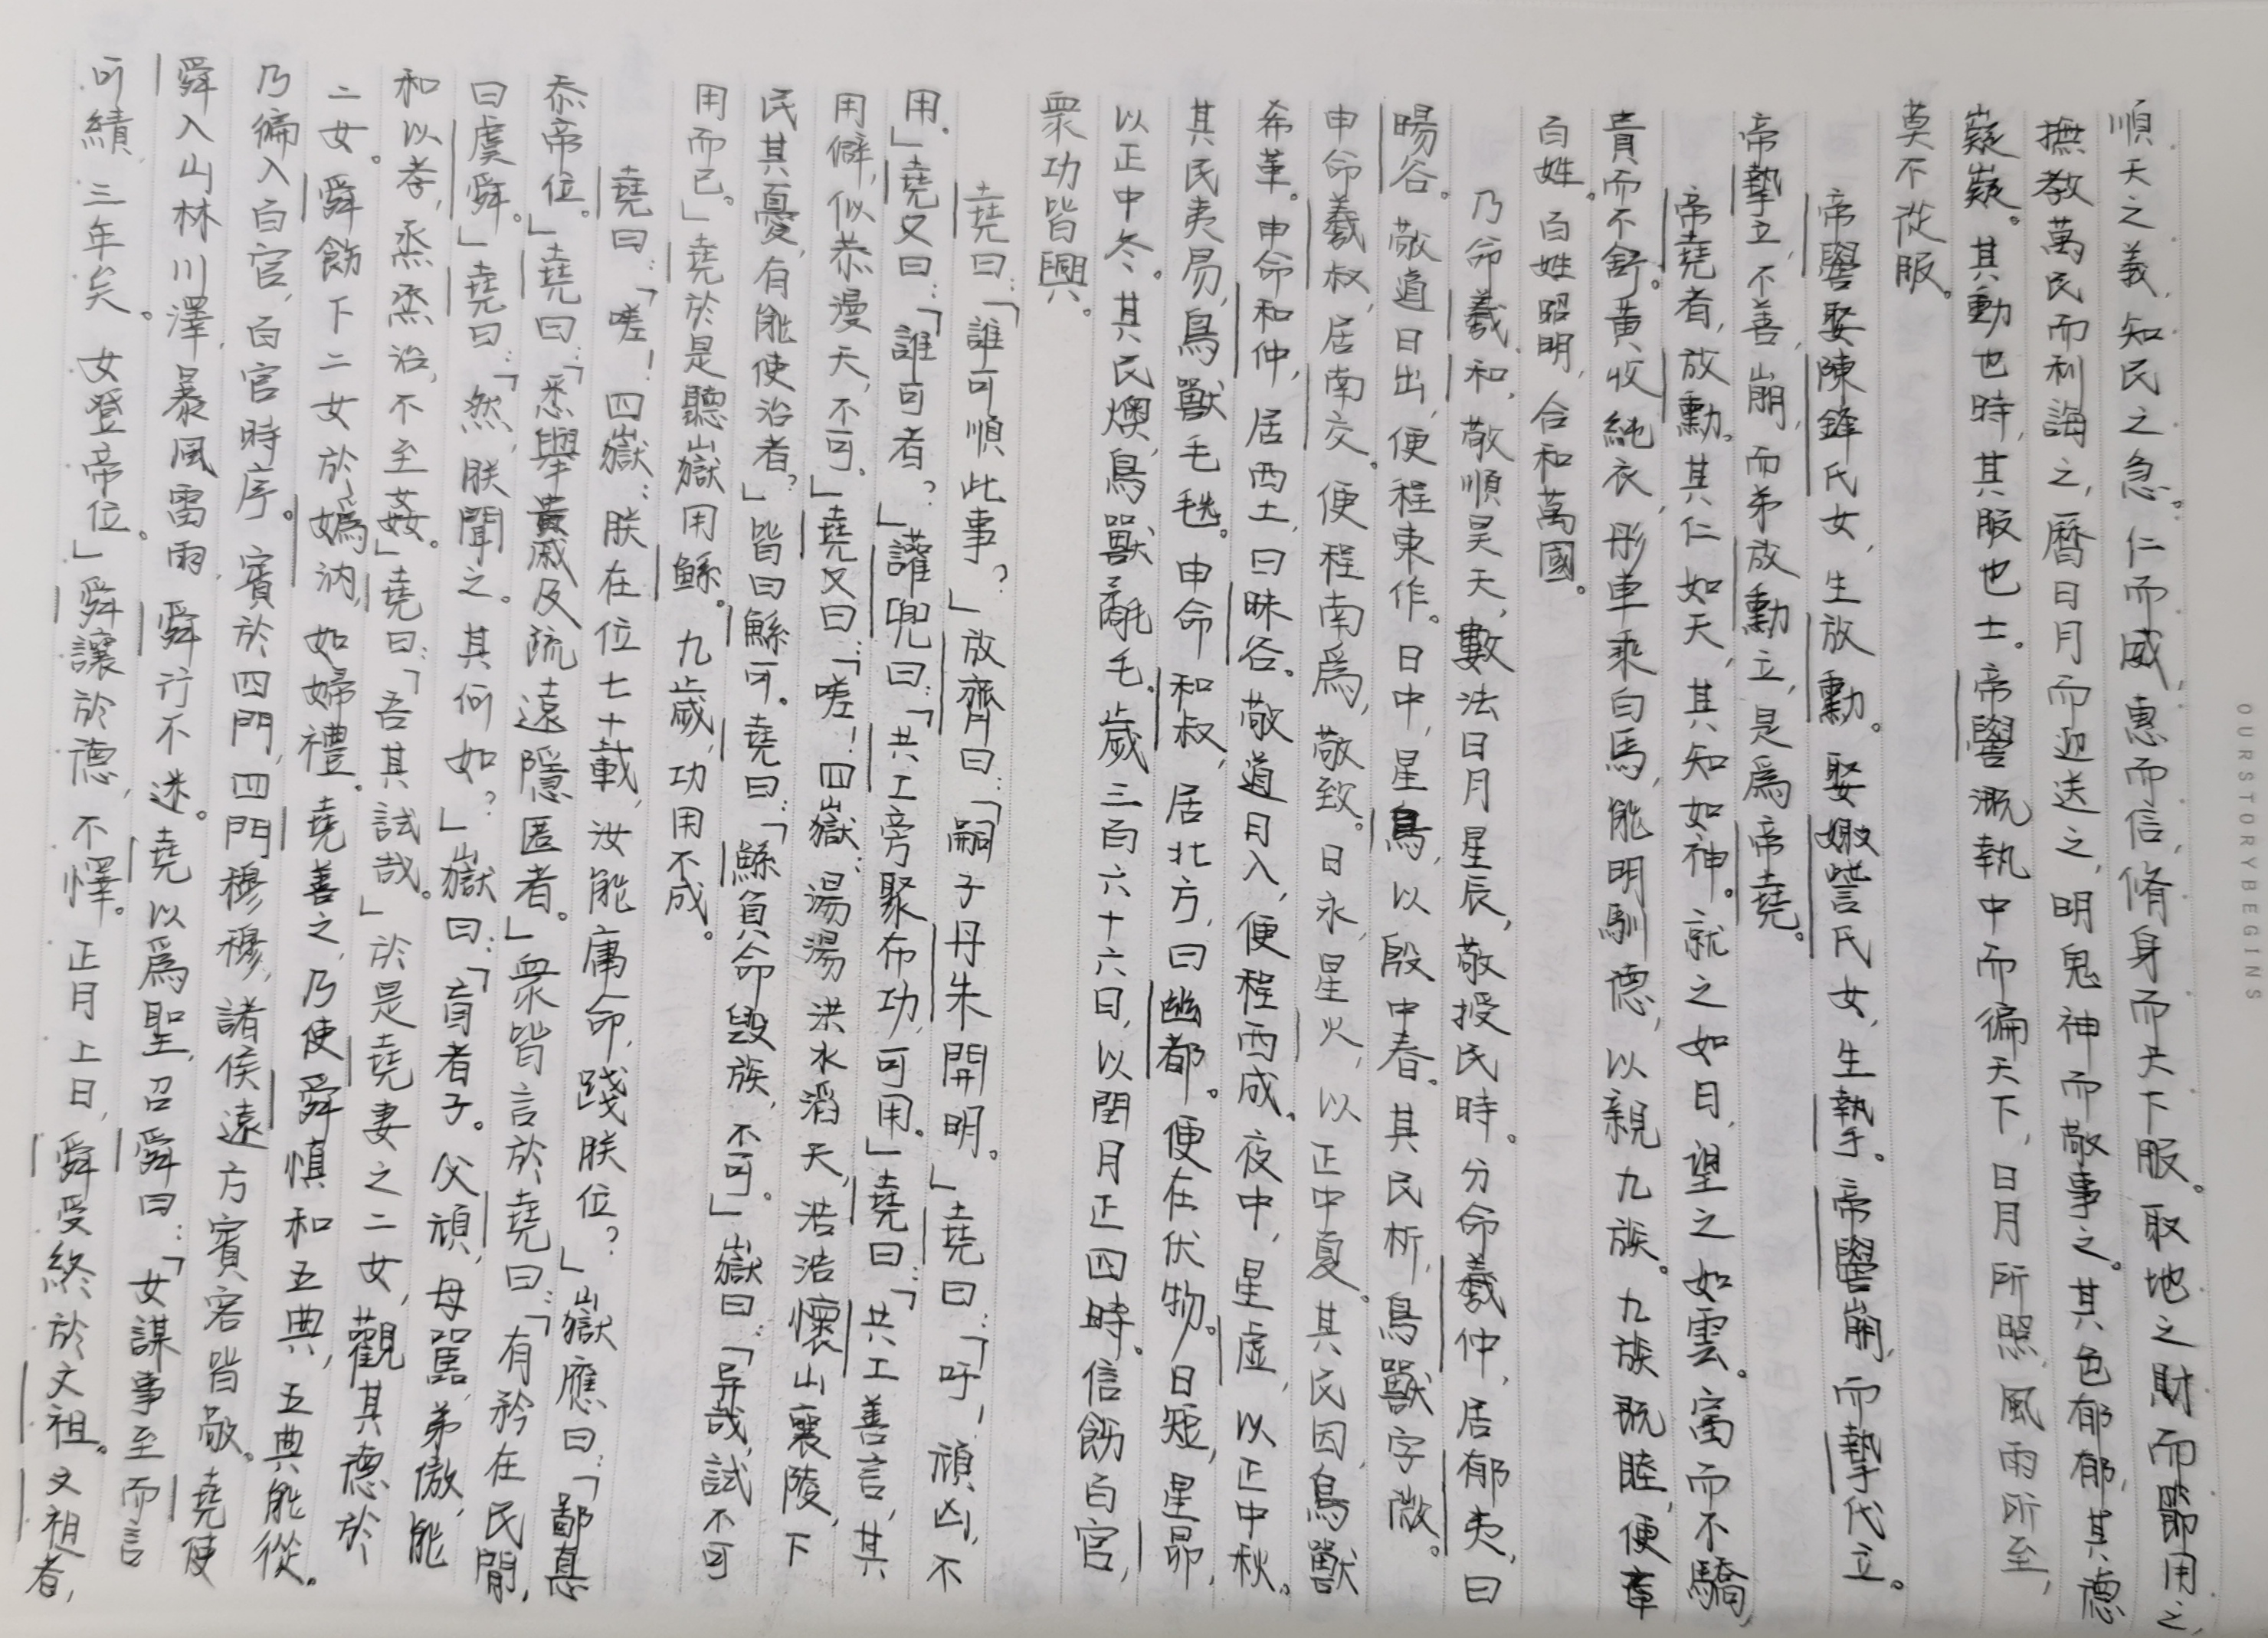 順天之義，知民之急。仁而威，惠而信，脩身而天下服。取地之財而節用之，
撫教萬民而利誨之，曆日月而迎送之，明鬼神而敬事之。其色郁郁，其德
嶷嶷。其動也時，其服也士。帝嚳溉執中而徧天下，日月所照，風雨所至，
莫不從服。
帝嚳娶陳鋒氏女，生放勳。娶娵訾氏女，生摯。帝嚳崩，而摯代立。
帝摯立，不善，崩，而弟放勳立，是爲帝堯。
帝堯者，放勳。其仁如天，其知如神。就之如日，望之如雲。富而不驕，
貴而不舒。黃收純衣，彤車乘白馬，能明馴德，以親九族。九族既睦，便章
百姓。百姓昭明，合和萬國。
乃命羲、和，敬順昊天，數法日月星辰，敬授民時。分命羲仲，居郁夷，曰
暘谷。敬道日出，便程東作。日中，星鳥，以殷中春。其民析，鳥獸字微。
申命羲叔，居南交。便程南爲，敬致。日永，星火，以正中夏。其民因，鳥獸
希革。申命和仲，居西土，曰昧谷。敬道日入，便程西成。夜中，星虛，以正中秋。
其民夷易，鳥獸毛毨。申命和叔，居北方，曰幽都。便在伏物。日短，星昴，
以正中冬。其民燠，鳥獸氄毛。歲三百六十六日，以閏月正四時。信飭百官，
眾功皆興。
堯曰：「誰可順此事？」放齊曰：「嗣子丹朱開明。」堯曰：「吁！頑凶，不
用。」堯又曰：「誰可者？」讙兜曰：「共工旁聚布功，可用。」堯曰：「共工善言，其
用僻，似恭漫天，不可。」堯又曰：「嗟！四嶽：湯湯洪水滔天，浩浩懷山襄陵，下
民其憂，有能使治者？」皆曰鯀可。堯曰：「鯀負命毀族，不可。」嶽曰：「异哉，試不可
用而已。」堯於是聽嶽用鯀。九歲，功用不成。
堯曰：「嗟！四嶽：朕在位七十載，汝能庸命，踐朕位？」嶽應曰：「鄙悳
忝帝位。」堯曰：「悉舉貴戚及疏遠隱匿者。」眾皆言於堯曰：「有矜在民閒，
曰虞舜。」堯曰：「然，朕聞之。其何如？」嶽曰：「盲者子。父頑，母嚚，弟傲，能
和以孝，烝烝治，不至姦。」堯曰：「吾其試哉。」於是堯妻之二女，觀其德於
二女。舜飭下二女於嬀汭，如婦禮。堯善之，乃使舜慎和五典，五典能從。
乃徧入百官，百官時序。賓於四門，四門穆穆，諸侯遠方賓客皆敬。堯使
舜入山林川澤，暴風雷雨，舜行不迷。堯以爲聖，召舜曰：「女謀事至而言
可績，三年矣。女登帝位。」舜讓於德，不懌。正月上日，舜受終於文祖。文祖者，
OURSTORYBEGINS